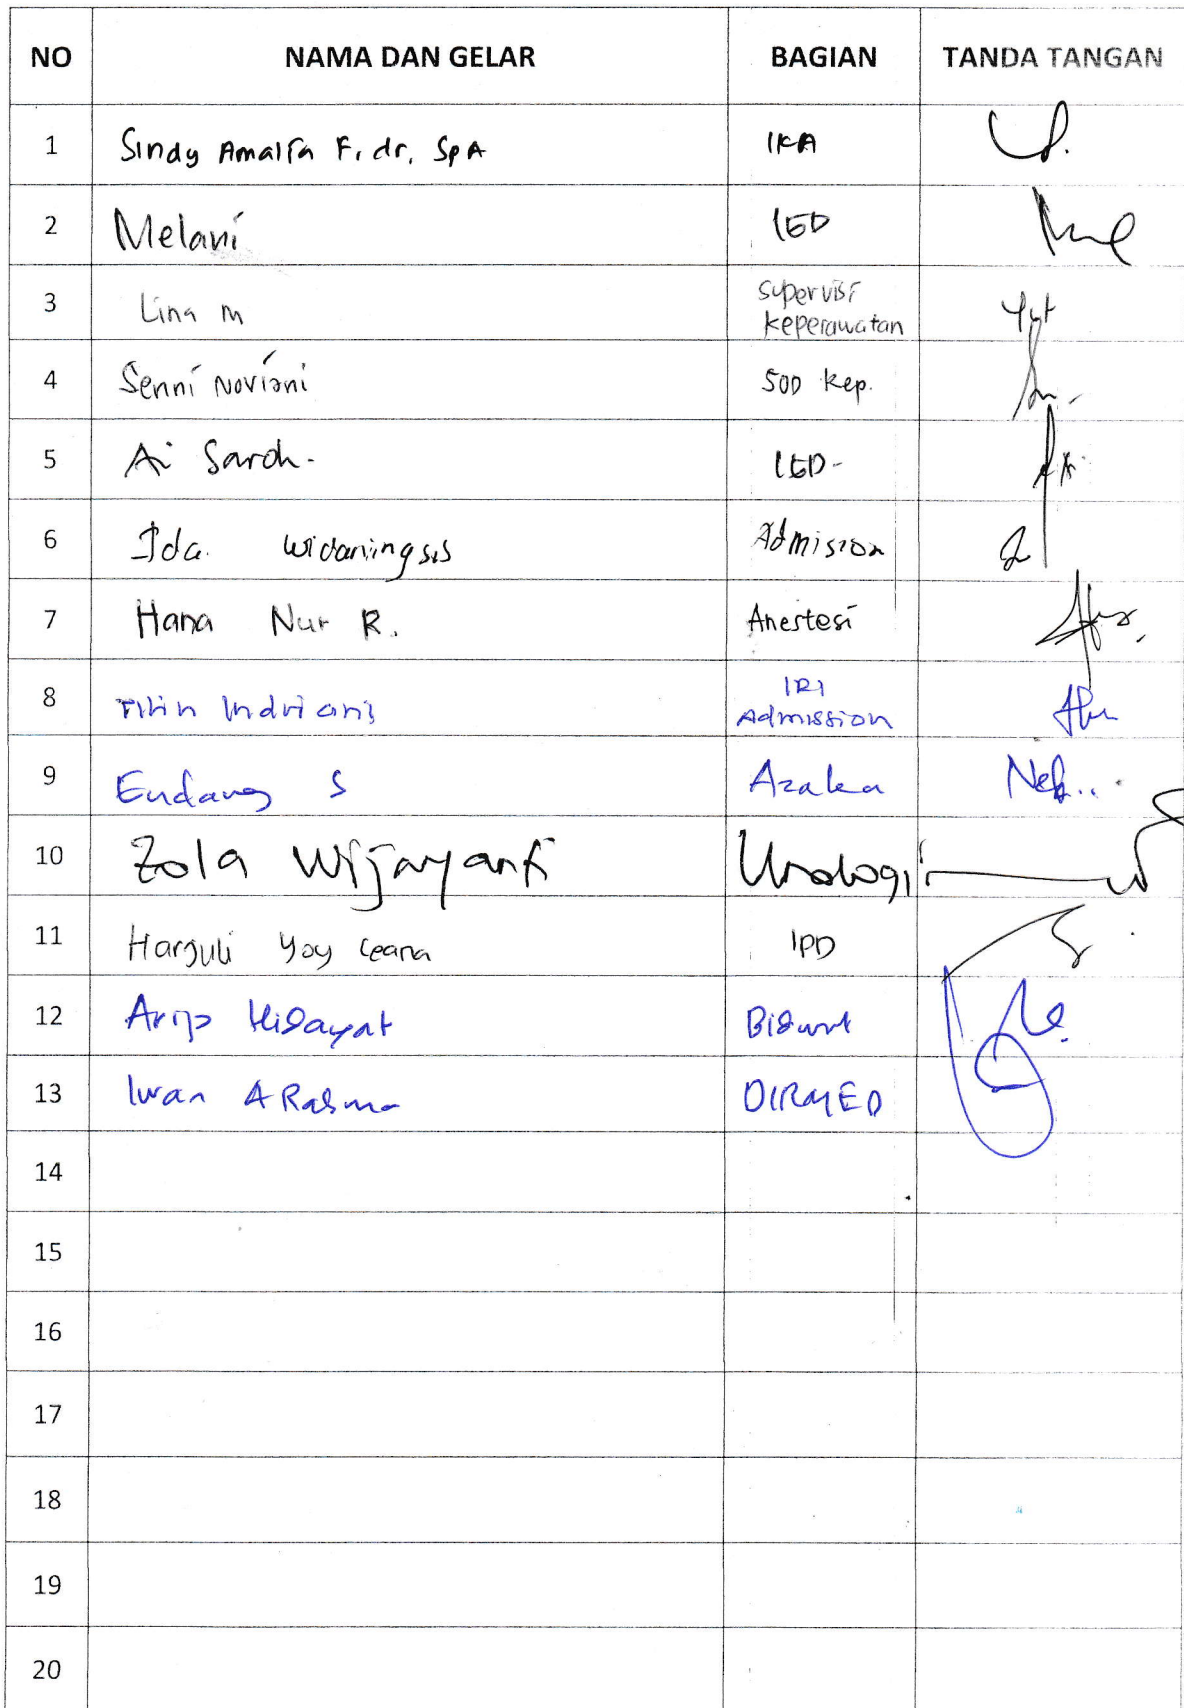 NO NAMA DAN GELAR BAGIAN TANDA TANGAN
1 Sindy Amalia F, dr, SpA IKA
2 Melani IED
3 Lina M Supervisi
keperawatan
4 Senni Noviani SOD kep.
5 Ai Saroh. IED-
6 Ida. Widaningsis Admision
7 Hana Nur R. Anestesi
8 Indriani IRI
Admission
9 Endang S Azalea
10 Zola Wijayanti Urologi
11 IPD
12 Arip Hidayat
13 Iwan A Rasma DIRMED
14
15
16
17
18
19
20